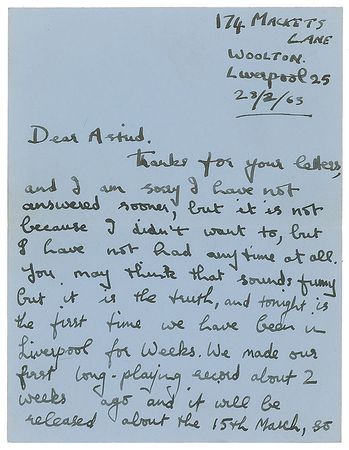 174 MACKETS
LANE
WOOLTON.
Liverpool 25
28/2/63
Dear Astrid.
Thanks for your letters,
and I am sorry I have not
answered sooner, but it is not
because I didn't want to, but
I have not had any time at all.
You may think that sounds funny
but it is the truth, and tonight is
the first time we have been in
Liverpool for weeks. We made our
first long-playing record about 2
weeks ago and it will be
released about the 15th March, so